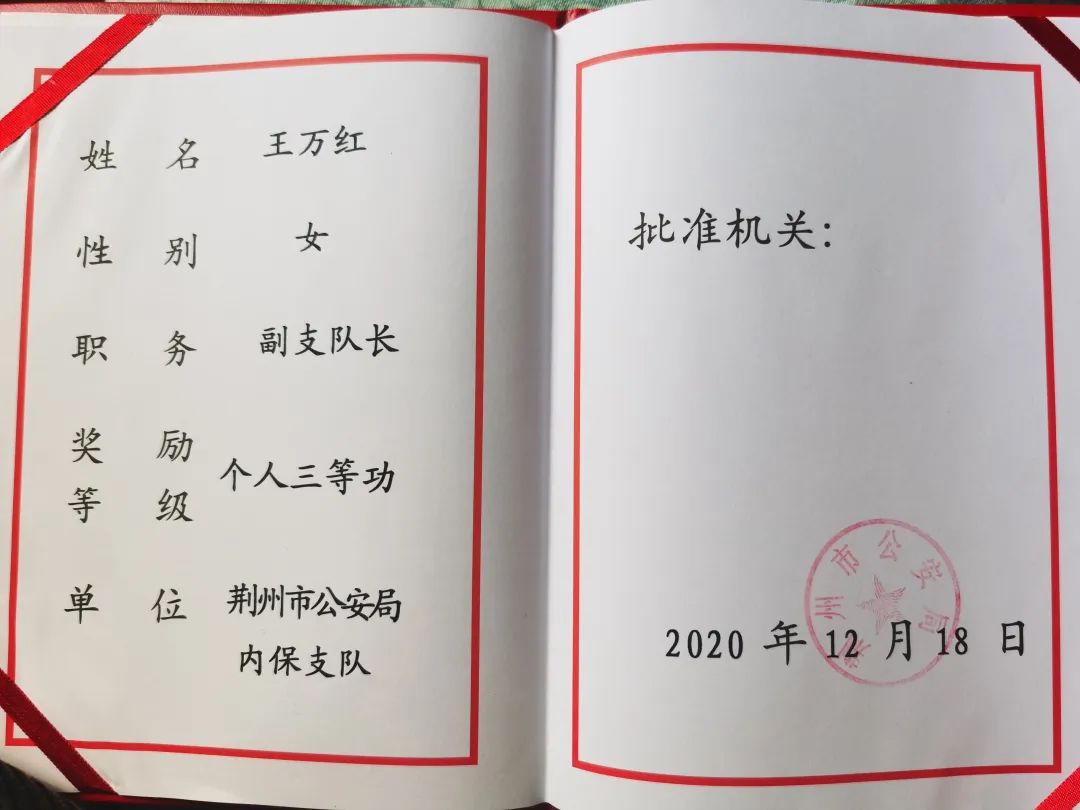 姓名 王万红
性别 女
职务 副支队长
奖励等级 个人三等功
单位 荆州市公安局
内保支队
批准机关：
荆州市公安局
2020年12月18日